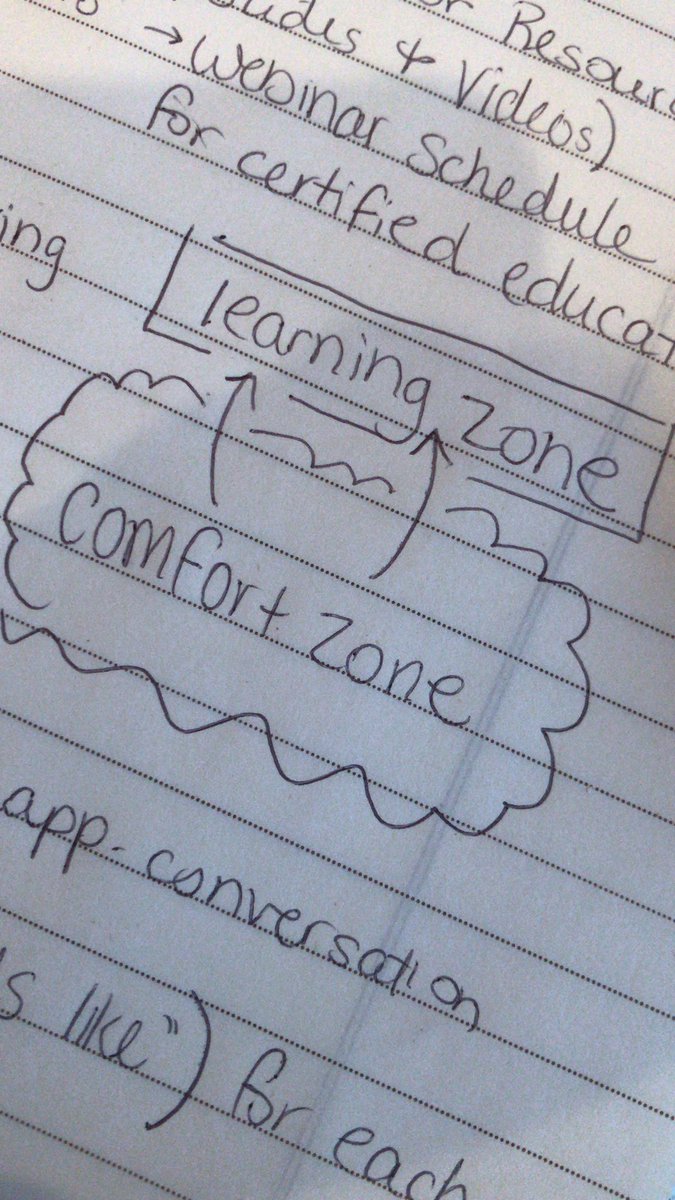 or Resour
& Videos)
→ Webinar Schedule
for certified educat
ing
learning zone
comfort zone
app-conversation
s like") for each